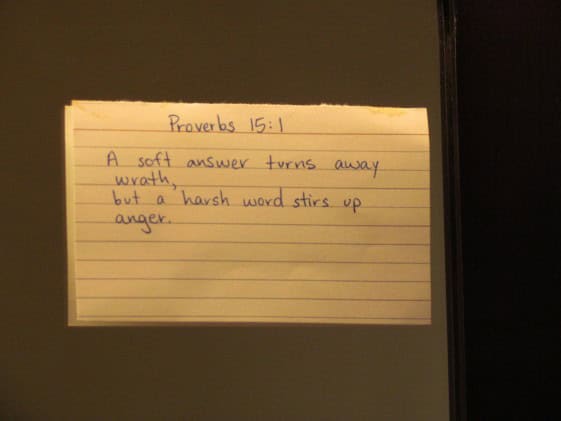 Proverbs 15:1
A soft answer turns away
wrath,
but a harsh word stirs up
anger.